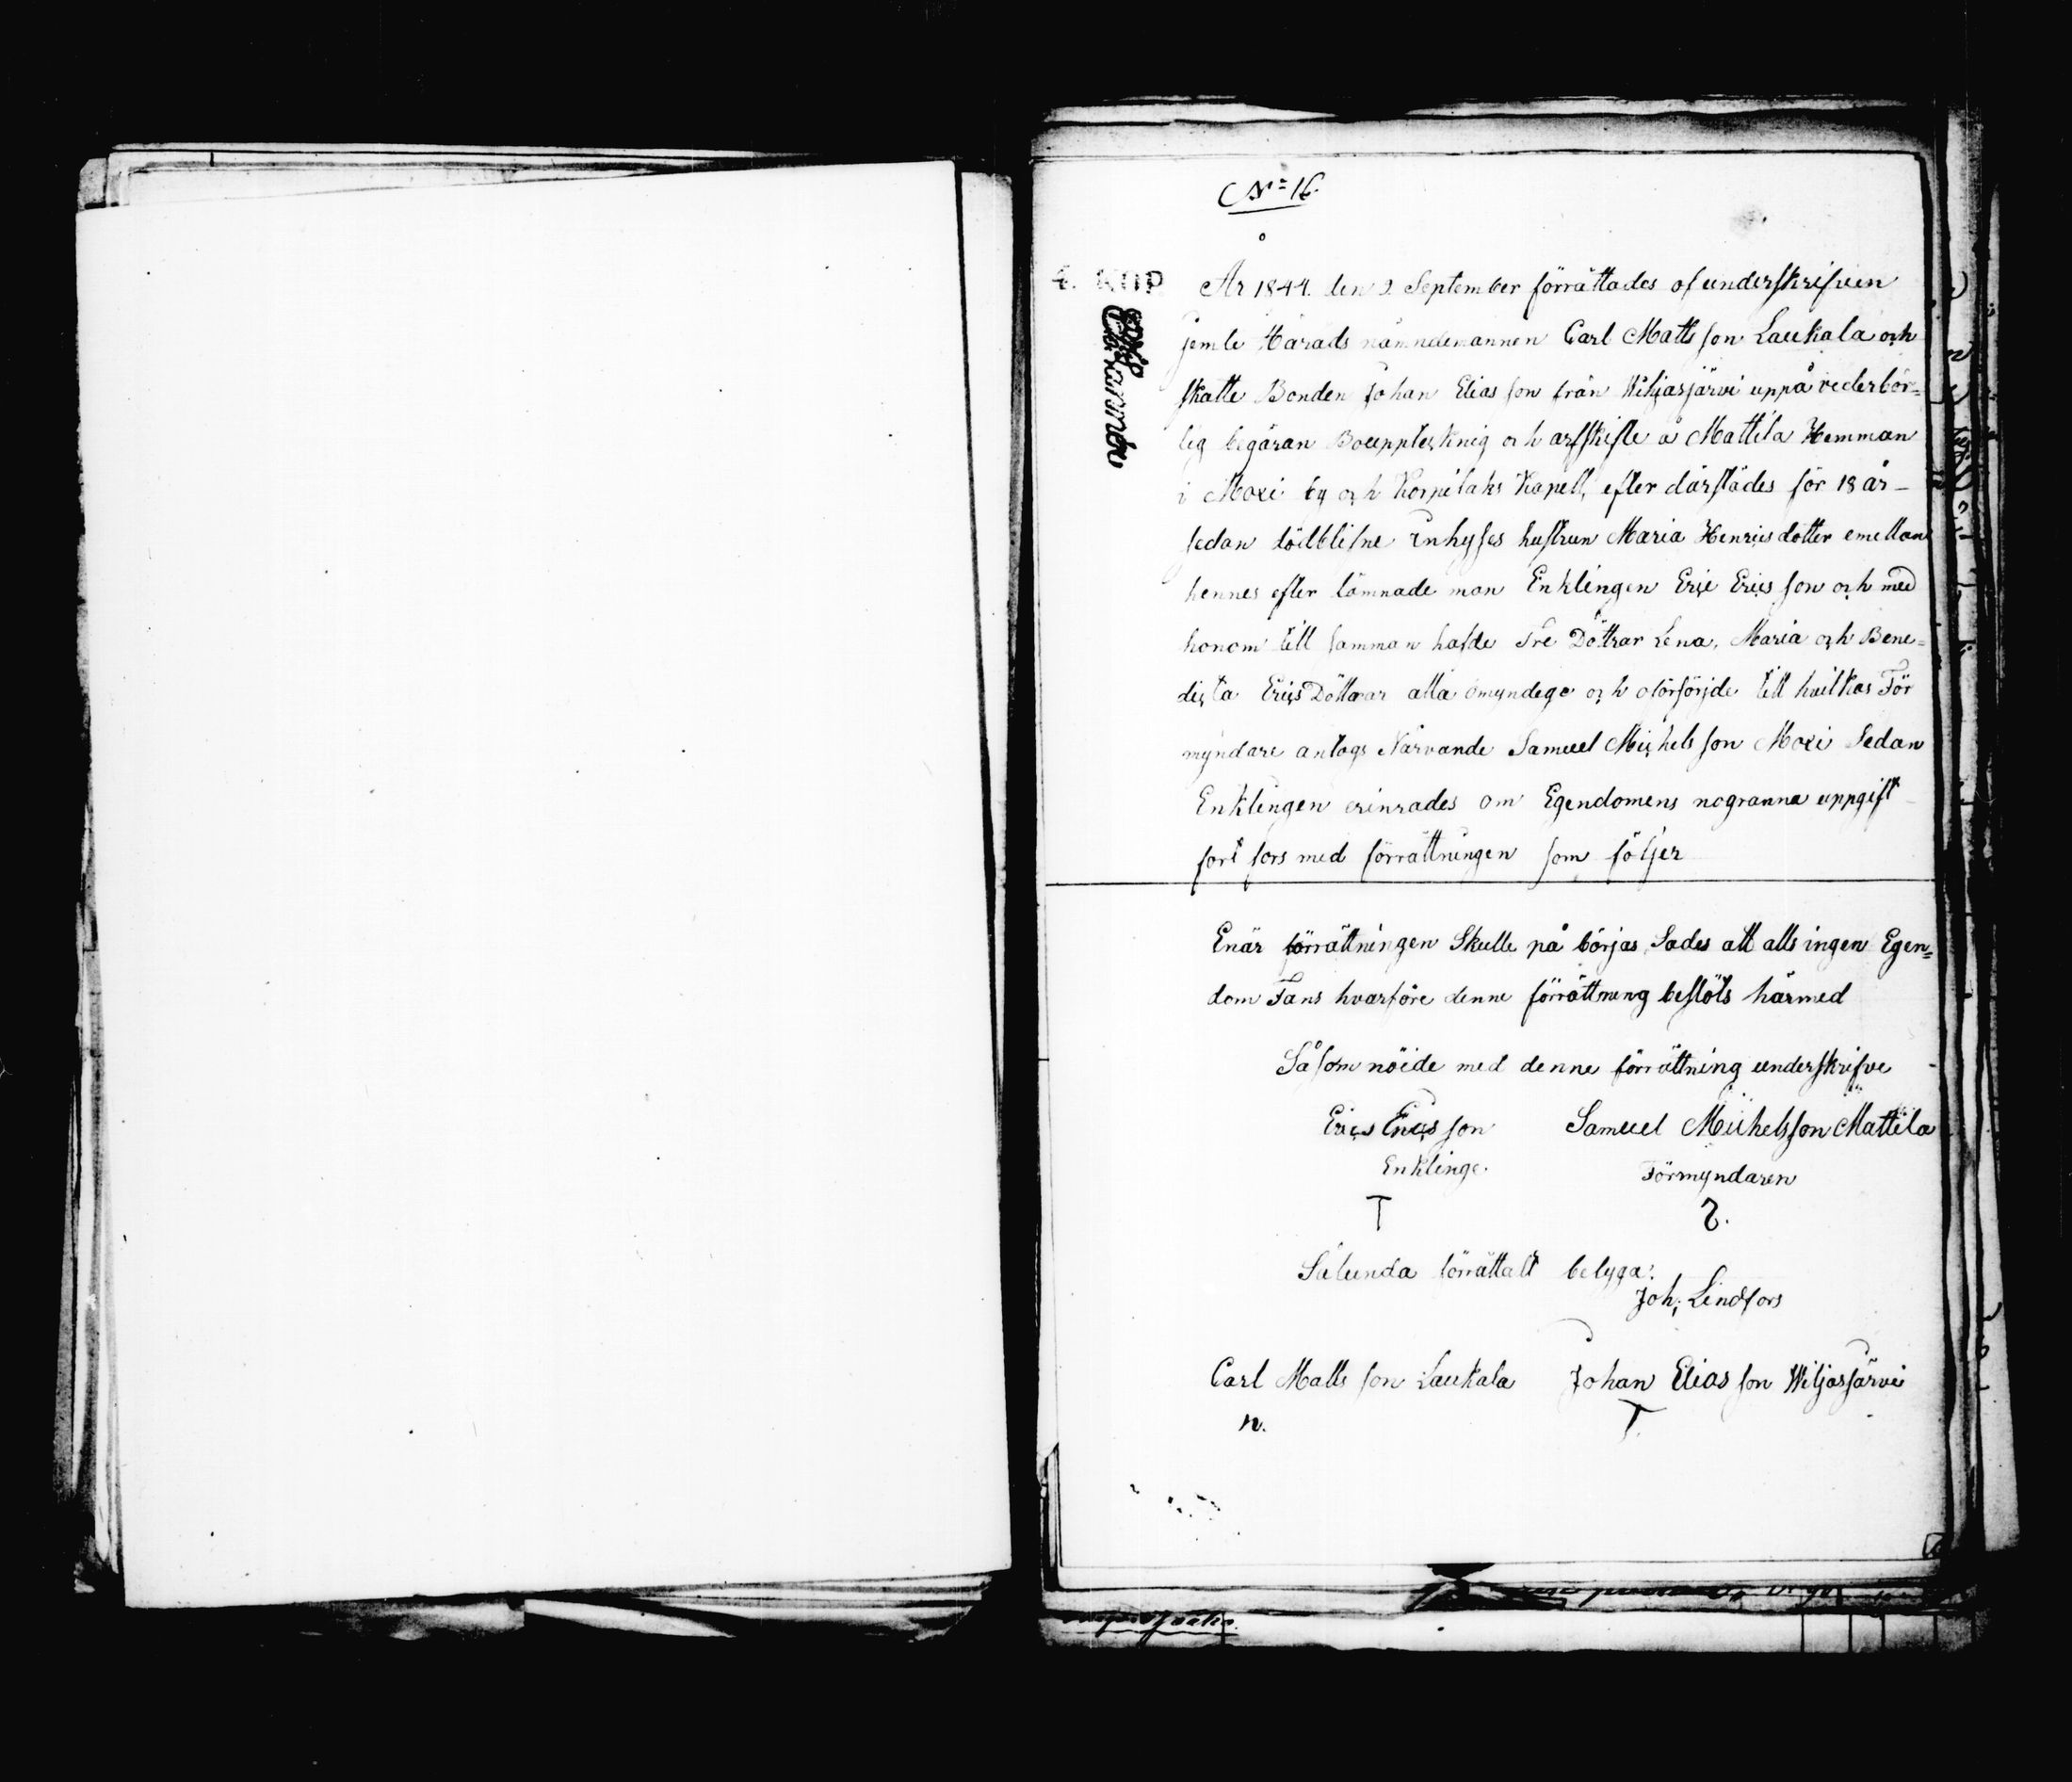 No 16.
År 1844. den 2 September förrättades of underskrifven
jemte Härads nämndemannen Carl Matts son Laukala och
skatte Bonden Johan Elias son från Wiljasjärvi uppå vederbör=
lig begäran Bouppteknig och arfskifte å Mattila Hemman
i Moxi by och Korpilaks Kapell, efter därstädes för 18 år
sedan dödblifne inhyses hustrun Maria Henrics dotter emellan
hennes efter lämnade man Enklingen Eric Erics son och med
honom till samman hafde Tre Döttrar Lena, Maria och Bene=
dicta Erics Döttrar alla omyndege och oförsörjde till hvilkas För
myndare antogs Närvande Samuel Michels son Moxi Sedan
Enklingen erinrades om Egendomens nogranna uppgift
fort fors med förrättningen som följer
Enär förrättningen Skulle på börjas Sades att alls ingen Egen=
dom Fans hvarföre denne förrättning beslöts härmed
Såsom nöide med denne förrättning underskrifve
Erics Erics son Samuel Michelsson Mattila
Enklinge. Förmyndaren
T
Sålunda förrättatt betyga:
Joh; Lindfors
Carl Matts son Laukala Johan Elias son Wiljasjärvi
n. T.